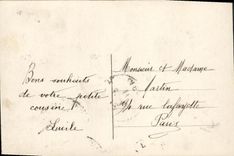 Bons souhaits
de votre petite
cousine
Lucile
Monsieur et Madame
Martin
rue Lafayette
Paris